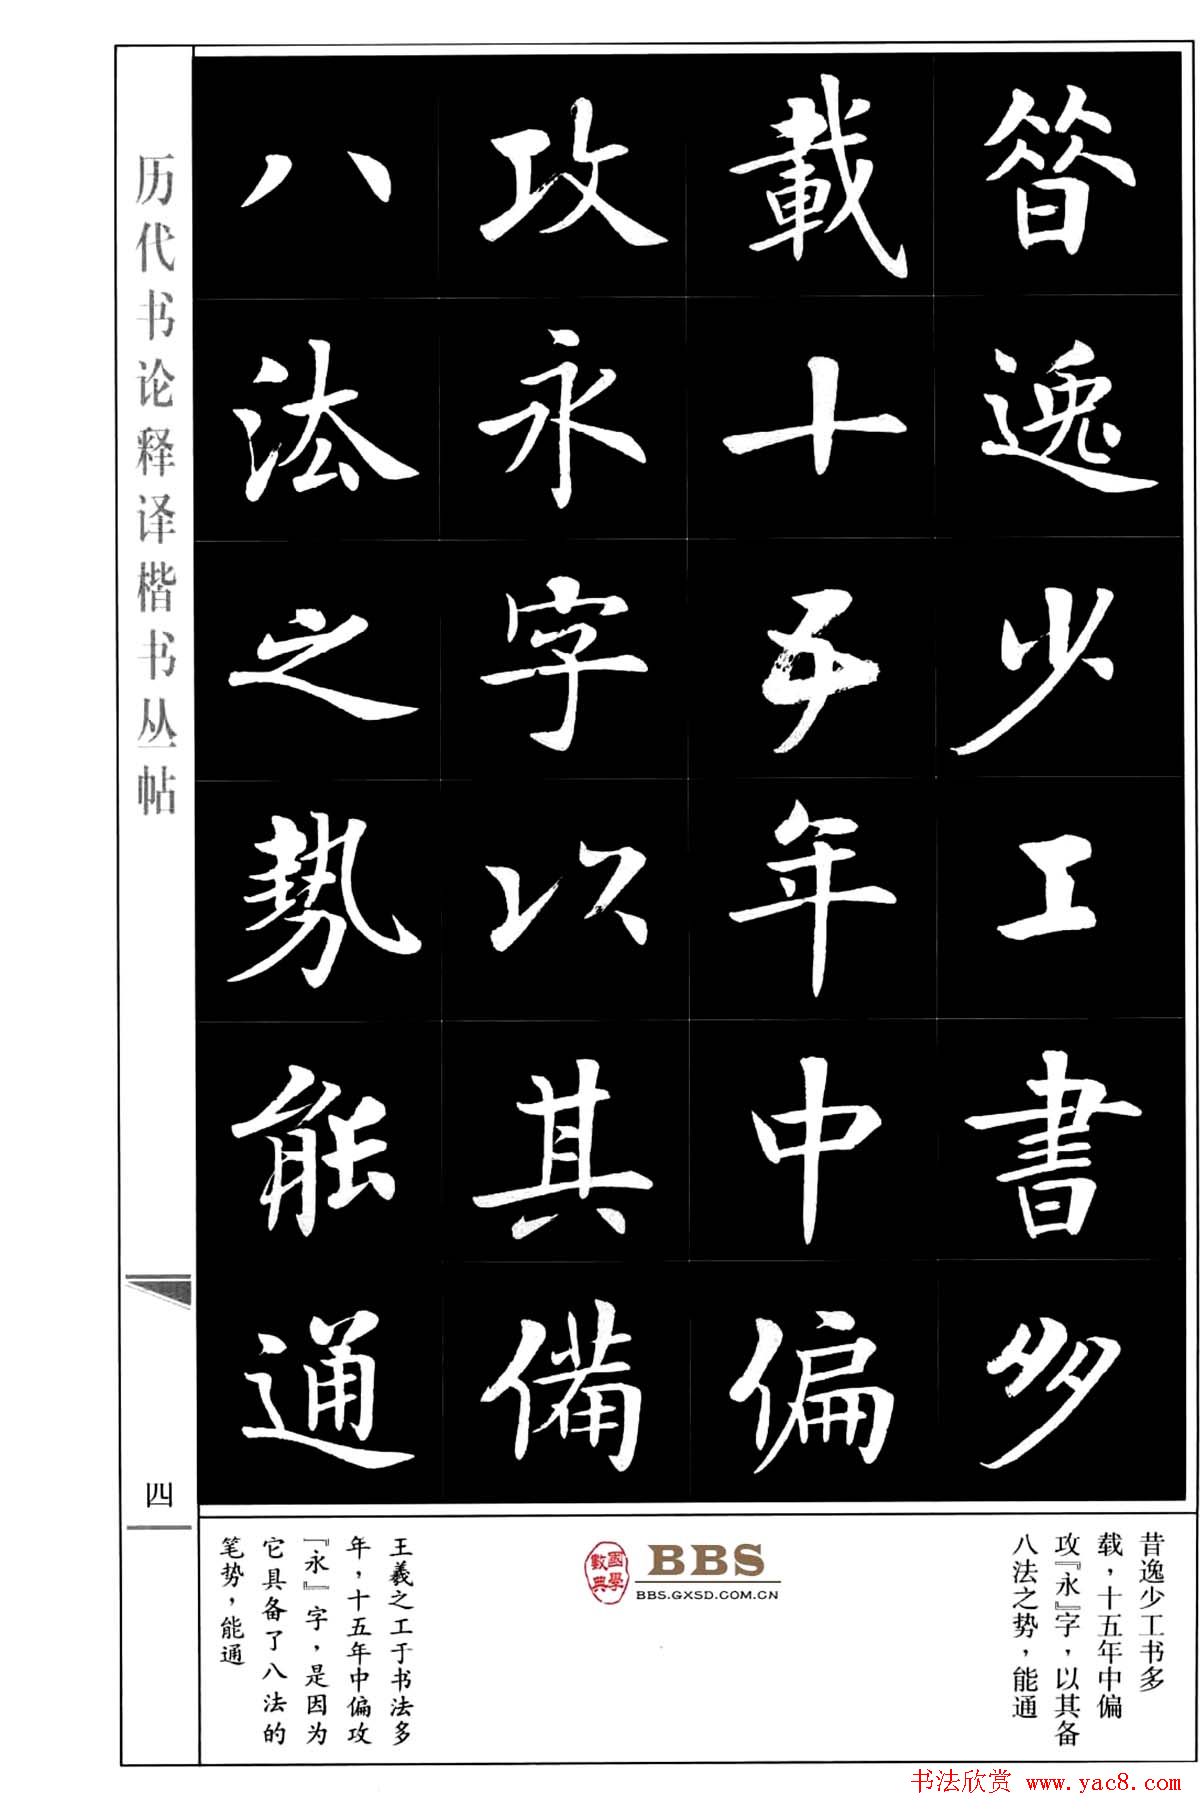 历代书论释译楷书丛帖
四
昝逸少工書多
載十五年中偏
攻永字以其備
八法之勢能通
昔逸少工书多
载，十五年中偏
攻『永』字，以其备
八法之势，能通
國學
數典
BBS
BBS.GXSD.COM.CN
王羲之工于书法多
年，十五年中偏攻
『永』字，是因为
它具备了八法的
笔势，能通
书法欣赏 www.yac8.com